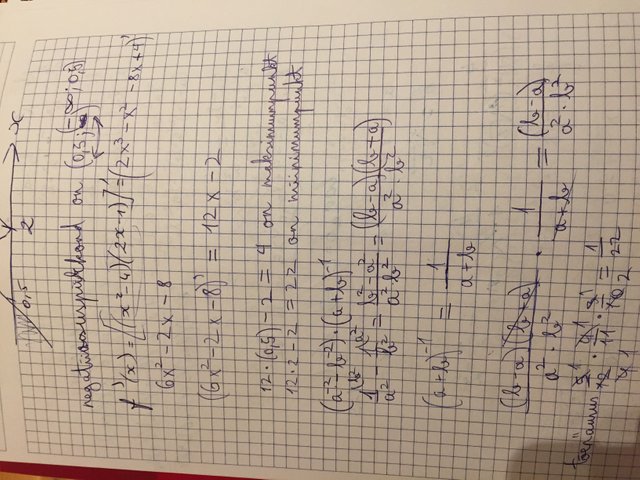 0,5 2 x
negatiivsuspiirkond on (0,5; (-∞; 0,5)
f''(x) = [(x²-4)(2x-1)]' = (2x³ - x² - 8x + 4)'
6x² - 2x - 8
(6x² - 2x - 8)' = 12x - 2
12·(0,5) - 2 = 4 on maksimumpunkt
12·2 - 2 = 22 on miinimumpunkt
(a⁻² - b⁻²)·(a+b)⁻¹
1/a² - 1/b² = (b² - a²)/(a²·b²) = (b-a)(b+a)/(a² b²)
(a+b)⁻¹ = 1/(a+b)
(b-a)(b+a)/(a²·b²) · 1/(a+b) = (b-a)/(a²·b²)
= 1/22